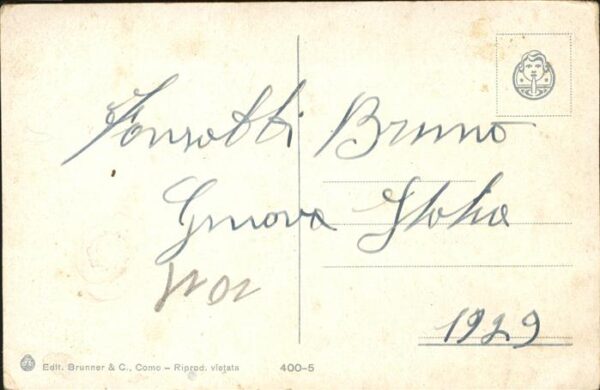 Bruno
Genova Italia
1929
Edit. Brunner & C., Como – Riprod. vietata 400-5